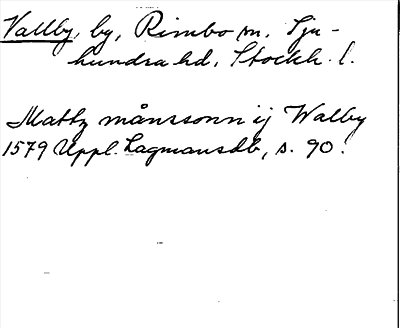 Vallby, by, Rimbo sn. Sju-
hundra hd, Stockh. l.
Mattz månssonn ij Walby
1579 Uppl. Lagmansdb, s. 90.